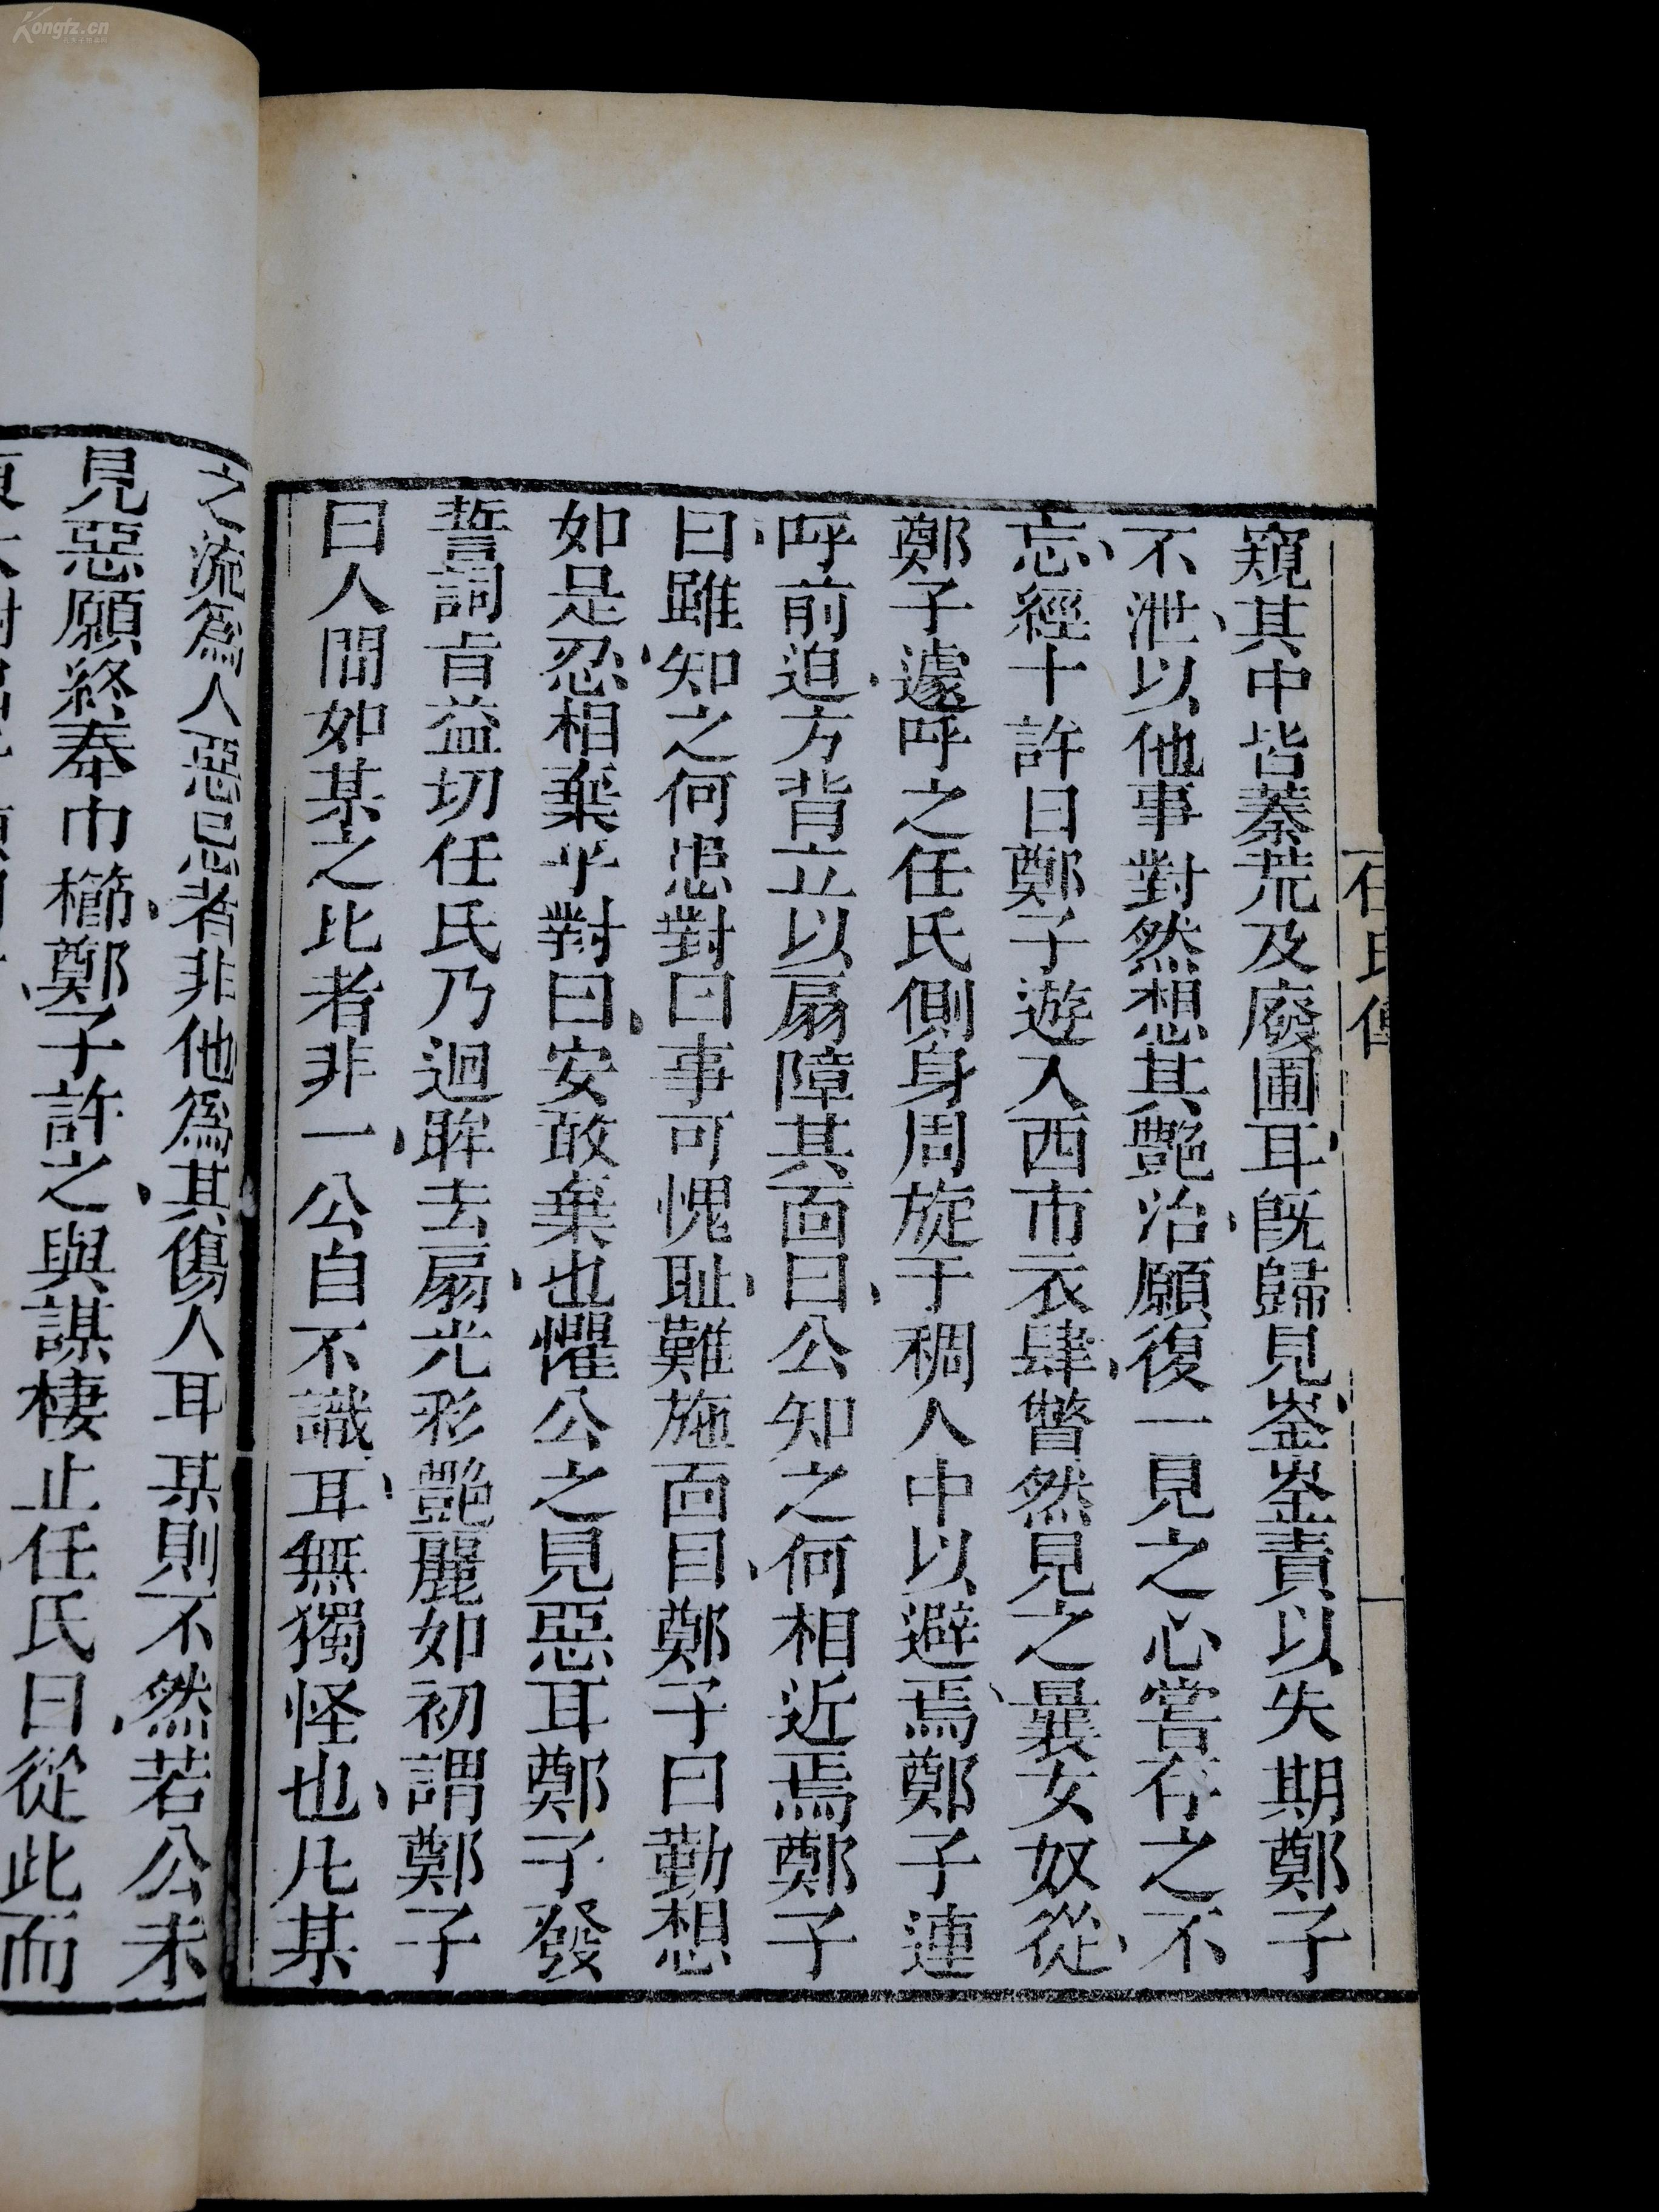 Kongfz.cn
任氏傳
窺其中皆蓁荒及廢圃耳既歸見崟崟責以失期鄭子
不泄以他事對然想其艷治願復一見之心嘗存之不
忘經十許日鄭子遊入西市衣肆瞥然見之曩女奴從
鄭子遽呼之任氏側身周旋于稠人中以避焉鄭子連
呼前迫方背立以扇障其面曰公知之何相近焉鄭子
曰雖知之何患對曰事可愧耻難施面目鄭子曰勤想
如是忍相棄乎對曰安敢棄也懼公之見惡耳鄭子發
誓詞旨益切任氏乃迴眸去扇光彩艷麗如初謂鄭子
曰人間如某之比者非一公自不識耳無獨怪也凡某
之流爲人惡忌者非他爲其傷人耳某則不然若公未
見惡願終奉巾櫛鄭子許之與謀棲止任氏曰從此而